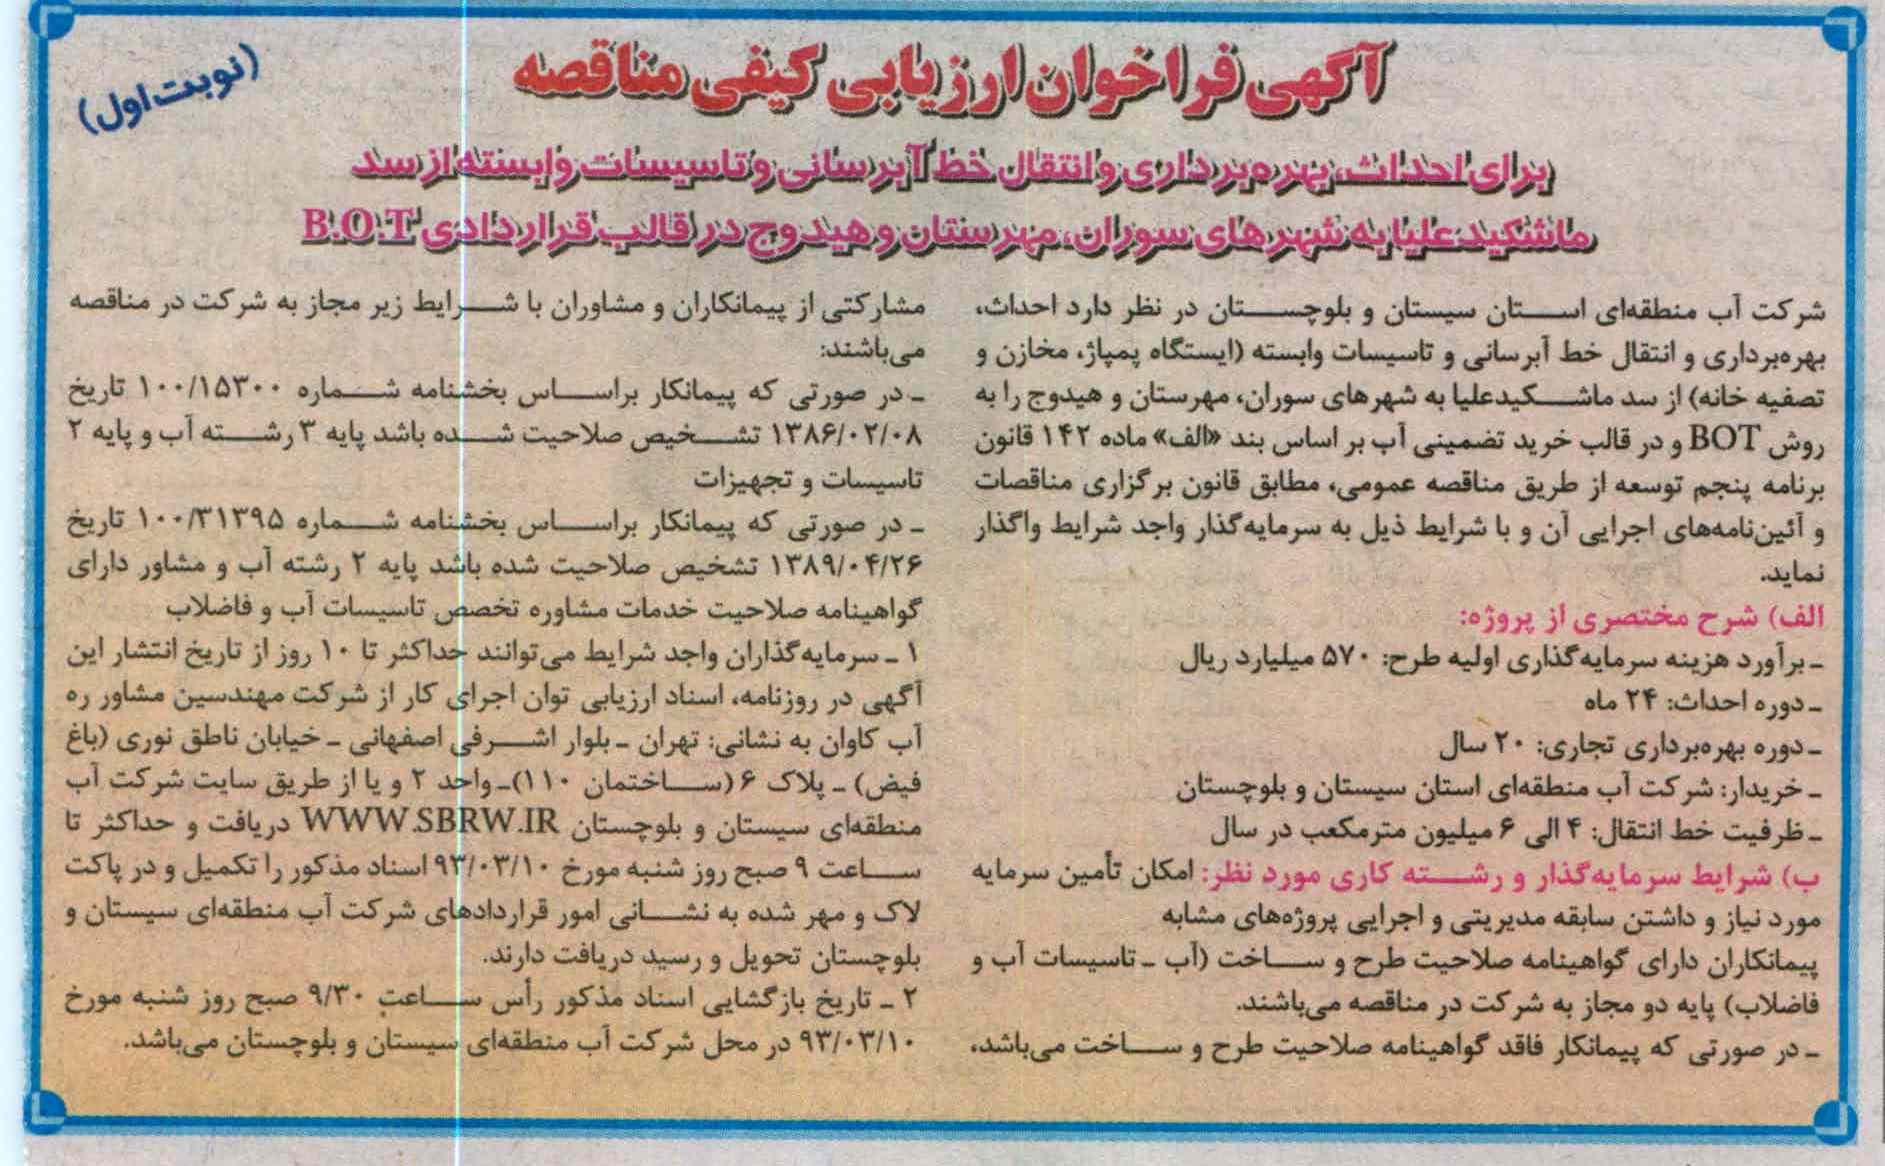 آگهی فراخوان ارزیابی کیفی مناقصه
(نوبت اول)
برای احداث، بهره‌برداری و انتقال خط آبرسانی و تاسیسات وابسته از سد
ماشکیدعلیا به شهرهای سوران، مهرستان و هیدوج در قالب قراردادی B.O.T
شرکت آب منطقه‌ای استان سیستان و بلوچستان در نظر دارد احداث،
بهره‌برداری و انتقال خط آبرسانی و تاسیسات وابسته (ایستگاه پمپاژ، مخازن و
تصفیه خانه) از سد ماشکیدعلیا به شهرهای سوران، مهرستان و هیدوج را به
روش BOT و در قالب خرید تضمینی آب بر اساس بند «الف» ماده ۱۴۲ قانون
برنامه پنجم توسعه از طریق مناقصه عمومی، مطابق قانون برگزاری مناقصات
و آئین‌نامه‌های اجرایی آن و با شرایط ذیل به سرمایه‌گذار واجد شرایط واگذار
نماید.
الف) شرح مختصری از پروژه:
ـ برآورد هزینه سرمایه‌گذاری اولیه طرح: ۵۷۰ میلیارد ریال
ـ دوره احداث: ۲۴ ماه
ـ دوره بهره‌برداری تجاری: ۲۰ سال
ـ خریدار: شرکت آب منطقه‌ای استان سیستان و بلوچستان
ـ ظرفیت خط انتقال: ۴ الی ۶ میلیون مترمکعب در سال
ب) شرایط سرمایه‌گذار و رشته کاری مورد نظر: امکان تأمین سرمایه
مورد نیاز و داشتن سابقه مدیریتی و اجرایی پروژه‌های مشابه
پیمانکاران دارای گواهینامه صلاحیت طرح و ساخت (آب ـ تاسیسات آب و
فاضلاب) پایه دو مجاز به شرکت در مناقصه می‌باشند.
ـ در صورتی که پیمانکار فاقد گواهینامه صلاحیت طرح و ساخت می‌باشد،
مشارکتی از پیمانکاران و مشاوران با شرایط زیر مجاز به شرکت در مناقصه
می‌باشند:
ـ در صورتی که پیمانکار براساس بخشنامه شماره ۱۰۰/۱۵۳۰۰ تاریخ
۱۳۸۶/۰۲/۰۸ تشخیص صلاحیت شده باشد پایه ۳ رشته آب و پایه ۲
تاسیسات و تجهیزات
ـ در صورتی که پیمانکار براساس بخشنامه شماره ۱۰۰/۳۱۳۹۵ تاریخ
۱۳۸۹/۰۴/۲۶ تشخیص صلاحیت شده باشد پایه ۲ رشته آب و مشاور دارای
گواهینامه صلاحیت خدمات مشاوره تخصص تاسیسات آب و فاضلاب
۱ ـ سرمایه‌گذاران واجد شرایط می‌توانند حداکثر تا ۱۰ روز از تاریخ انتشار این
آگهی در روزنامه، اسناد ارزیابی توان اجرای کار از شرکت مهندسین مشاور ره
آب کاوان به نشانی: تهران ـ بلوار اشرفی اصفهانی ـ خیابان ناطق نوری (باغ
فیض) ـ پلاک ۶ (ساختمان ۱۱۰)ـ واحد ۲ و یا از طریق سایت شرکت آب
منطقه‌ای سیستان و بلوچستان WWW.SBRW.IR دریافت و حداکثر تا
ساعت ۹ صبح روز شنبه مورخ ۹۳/۰۳/۱۰ اسناد مذکور را تکمیل و در پاکت
لاک و مهر شده به نشانی امور قراردادهای شرکت آب منطقه‌ای سیستان و
بلوچستان تحویل و رسید دریافت دارند.
۲ ـ تاریخ بازگشایی اسناد مذکور رأس ساعت ۹/۳۰ صبح روز شنبه مورخ
۹۳/۰۳/۱۰ در محل شرکت آب منطقه‌ای سیستان و بلوچستان می‌باشد.